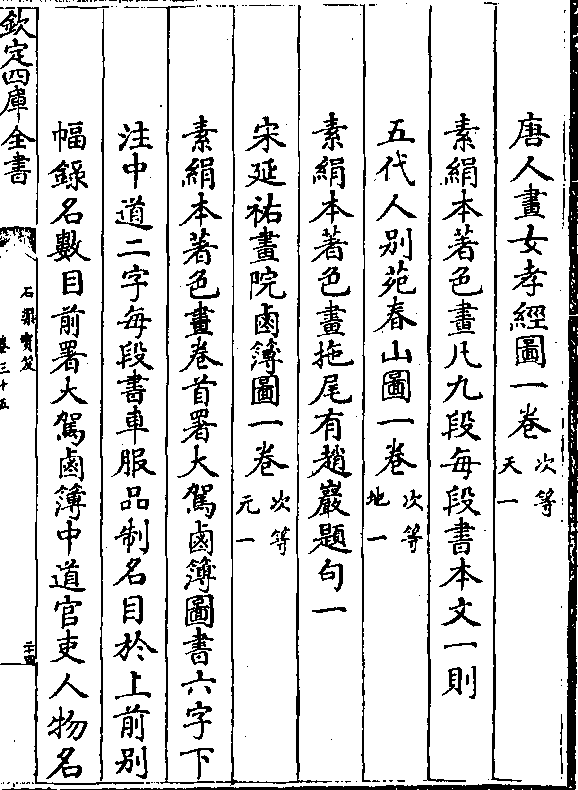 唐人畫女孝經圖一卷次等天一
素絹本著色畫凡九段每段書本文一則
五代人別苑春山圖一卷次等地一
素絹本著色畫拖尾有趙巖題句一
宋延祐畫院鹵簿圖一卷次等元一
素絹本著色畫卷首署大駕鹵簿圖書六字下
注中道二字每段書車服品制名目於上前別
幅錄名數目前署大駕鹵簿中道官吏人物名
欽定四庫全書
石渠寶笈
卷三十五
二十四